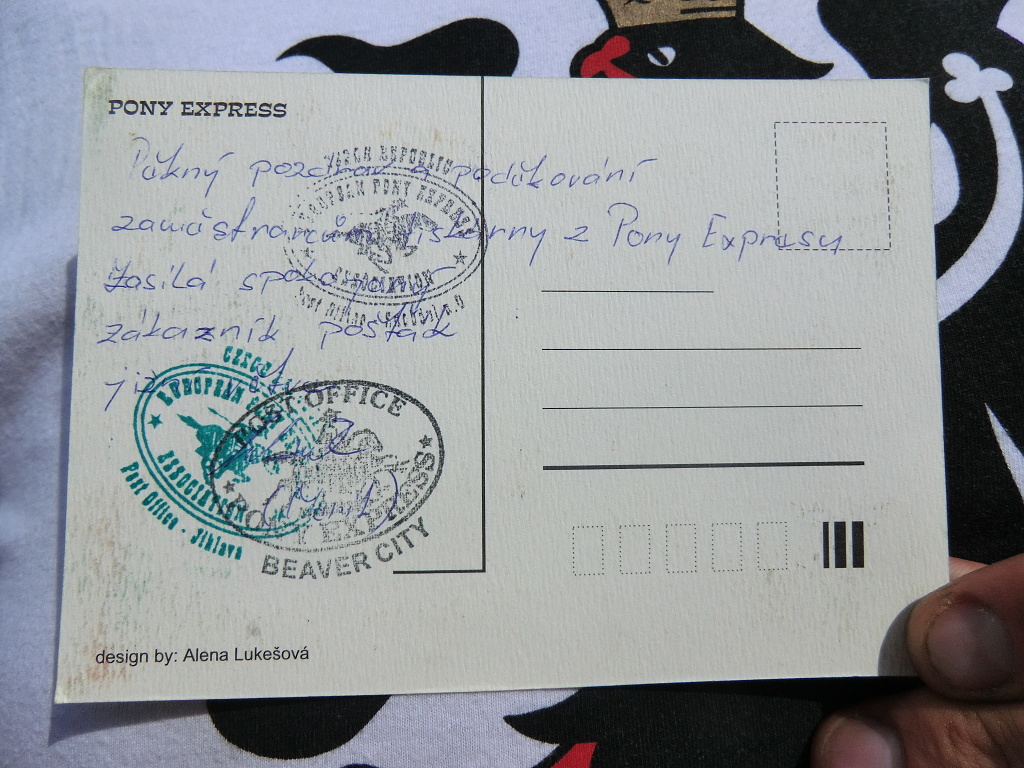 PONY EXPRESS
Pěkný pozdrav a poděkování
zaměstnancům z Pony Expresu
Zasílá spokojený
zákazník pošťák
CZECH REPUBLIC
EUROPEAN PONY EXPRESS
ASSOCIATION
CZECH
EUROPEAN
ASSOCIATION
Post Office - Jihlava
POST OFFICE
PONY EXPRESS
BEAVER CITY
design by: Alena Lukešová